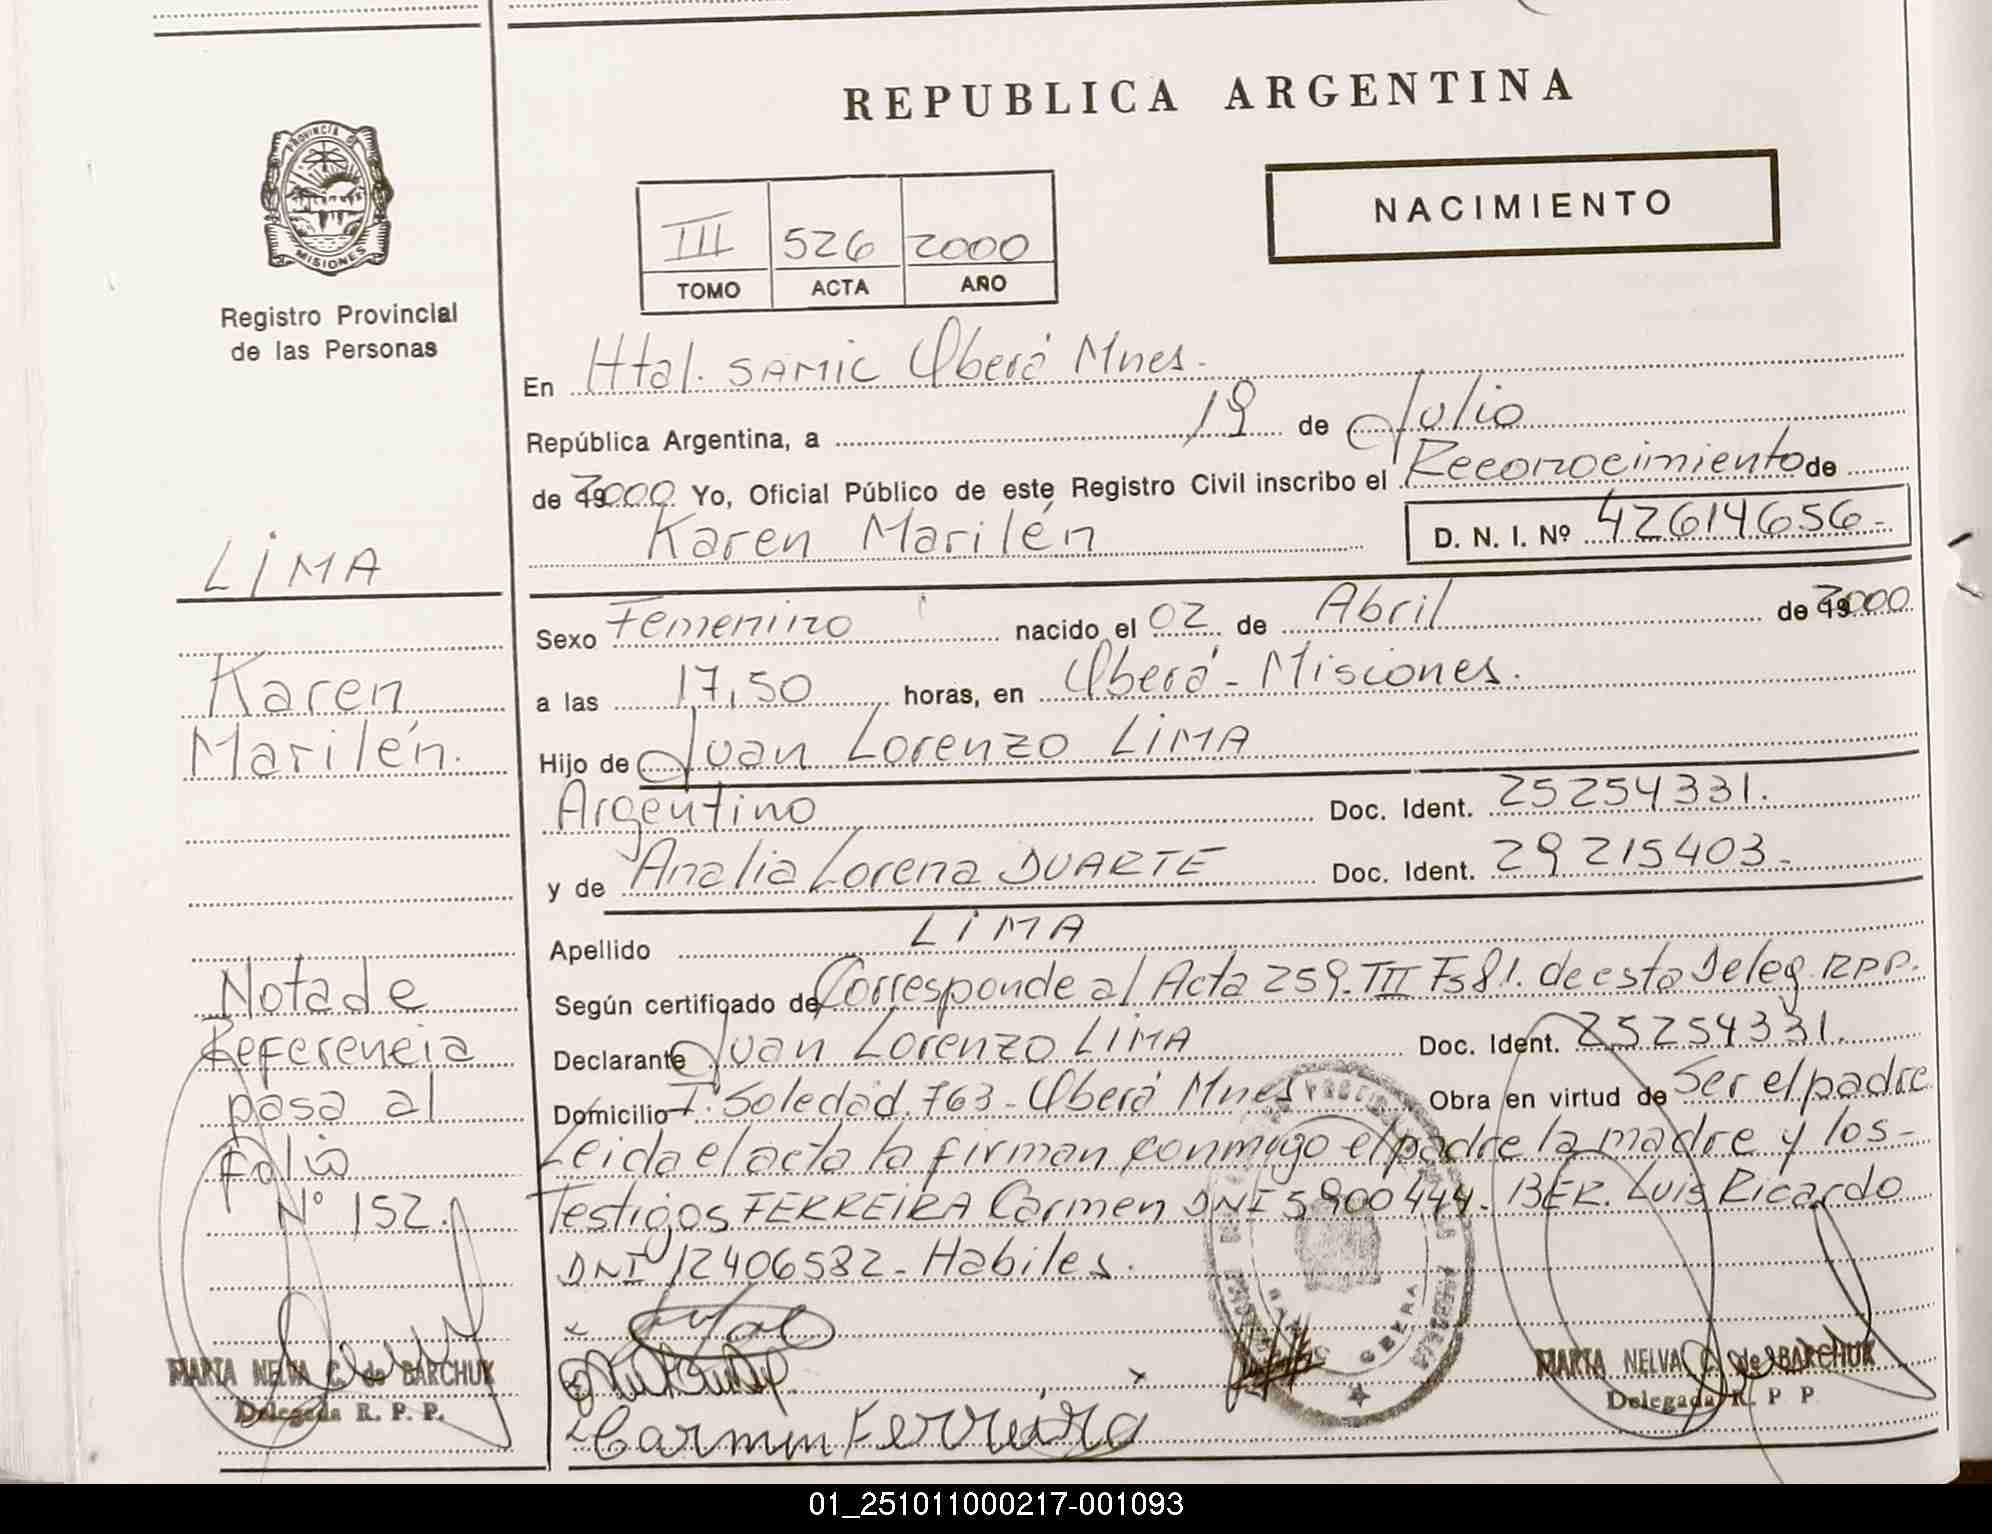 REPUBLICA ARGENTINA
PROVINCIA DE
MISIONES
Registro Provincial
de las Personas
III 526 2000
TOMO ACTA AÑO
NACIMIENTO
En Htal. SAMIC Oberá Mnes.
República Argentina, a 19 de Julio
de 2000 Yo, Oficial Público de este Registro Civil inscribo el Reconocimiento de
Karen Marilén D. N. I. Nº 42614656-
LIMA
Sexo Femenino nacido el 02 de Abril de 2000
a las 17,50 horas, en Oberá - Misiones.
Karen
Marilén.
Hijo de Juan Lorenzo LIMA
Argentino Doc. Ident. 25254331.
y de Analia Lorena DUARTE Doc. Ident. 29215403-
Apellido LIMA
Según certificado de Corresponde al Acta 259. TIII Fs 81. de esta Deleg. RPP.
Declarante Juan Lorenzo LIMA Doc. Ident. 25254331.
Domicilio T. Soledad 763 - Oberá Mnes Obra en virtud de Ser el padre
Leida el acta la firman conmigo el padre la madre y los-
Testigos FERREIRA Carmen DNI 5900444. BER. Luis Ricardo
DNI 12406582 - Habiles.
Nota de
Referencia
pasa al
Folio
Nº 152.
MARTA NELVA C. de BARCHUK
Delegada R. P. P.
OBERA
Carmen Ferreira
MARTA NELVA C. de BARCHUK
Delegada R. P P
01_251011000217-001093